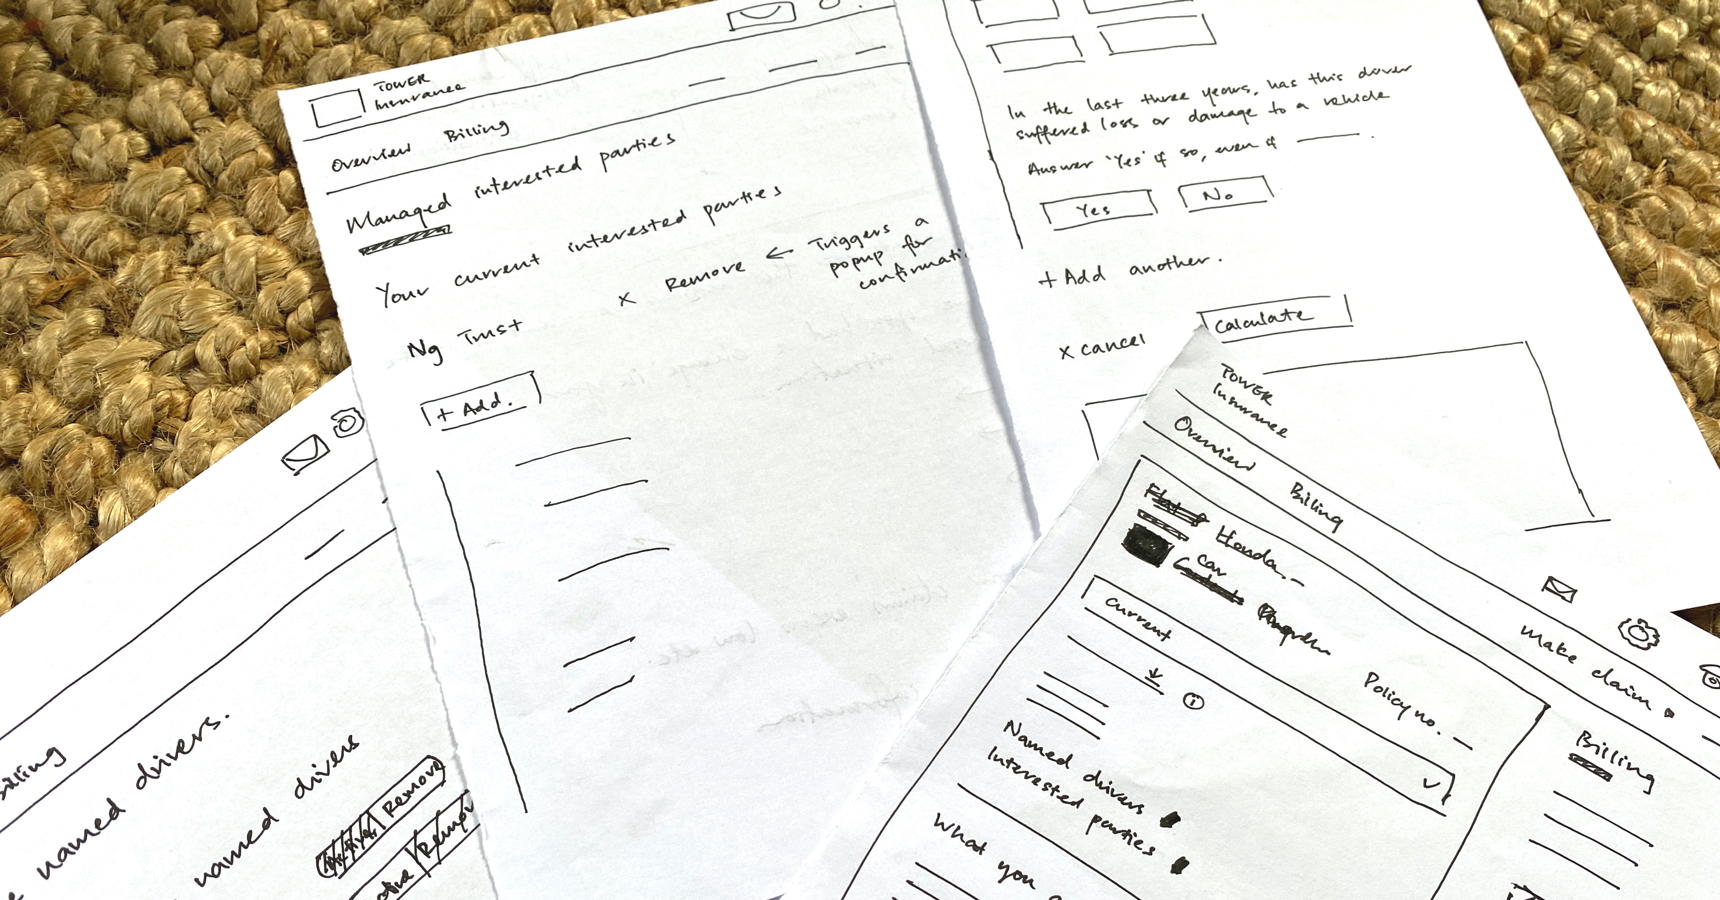 TOWER
Insurance
Overview Billing
Managed interested parties
Your current interested parties
Ng Trust
x Remove ← Triggers a
popup for
confirmati
+ Add.
In the last three years, has this driver
suffered loss or damage to a vehicle
Answer 'Yes' if so, even if
Yes No
+ Add another.
x cancel Calculate
TOWER
Insurance
Overview Billing
Make claim
Honda
car
current
Policy no.
Named drivers
Interested parties
What you
Billing
Billing
named drivers.
named drivers
Remove